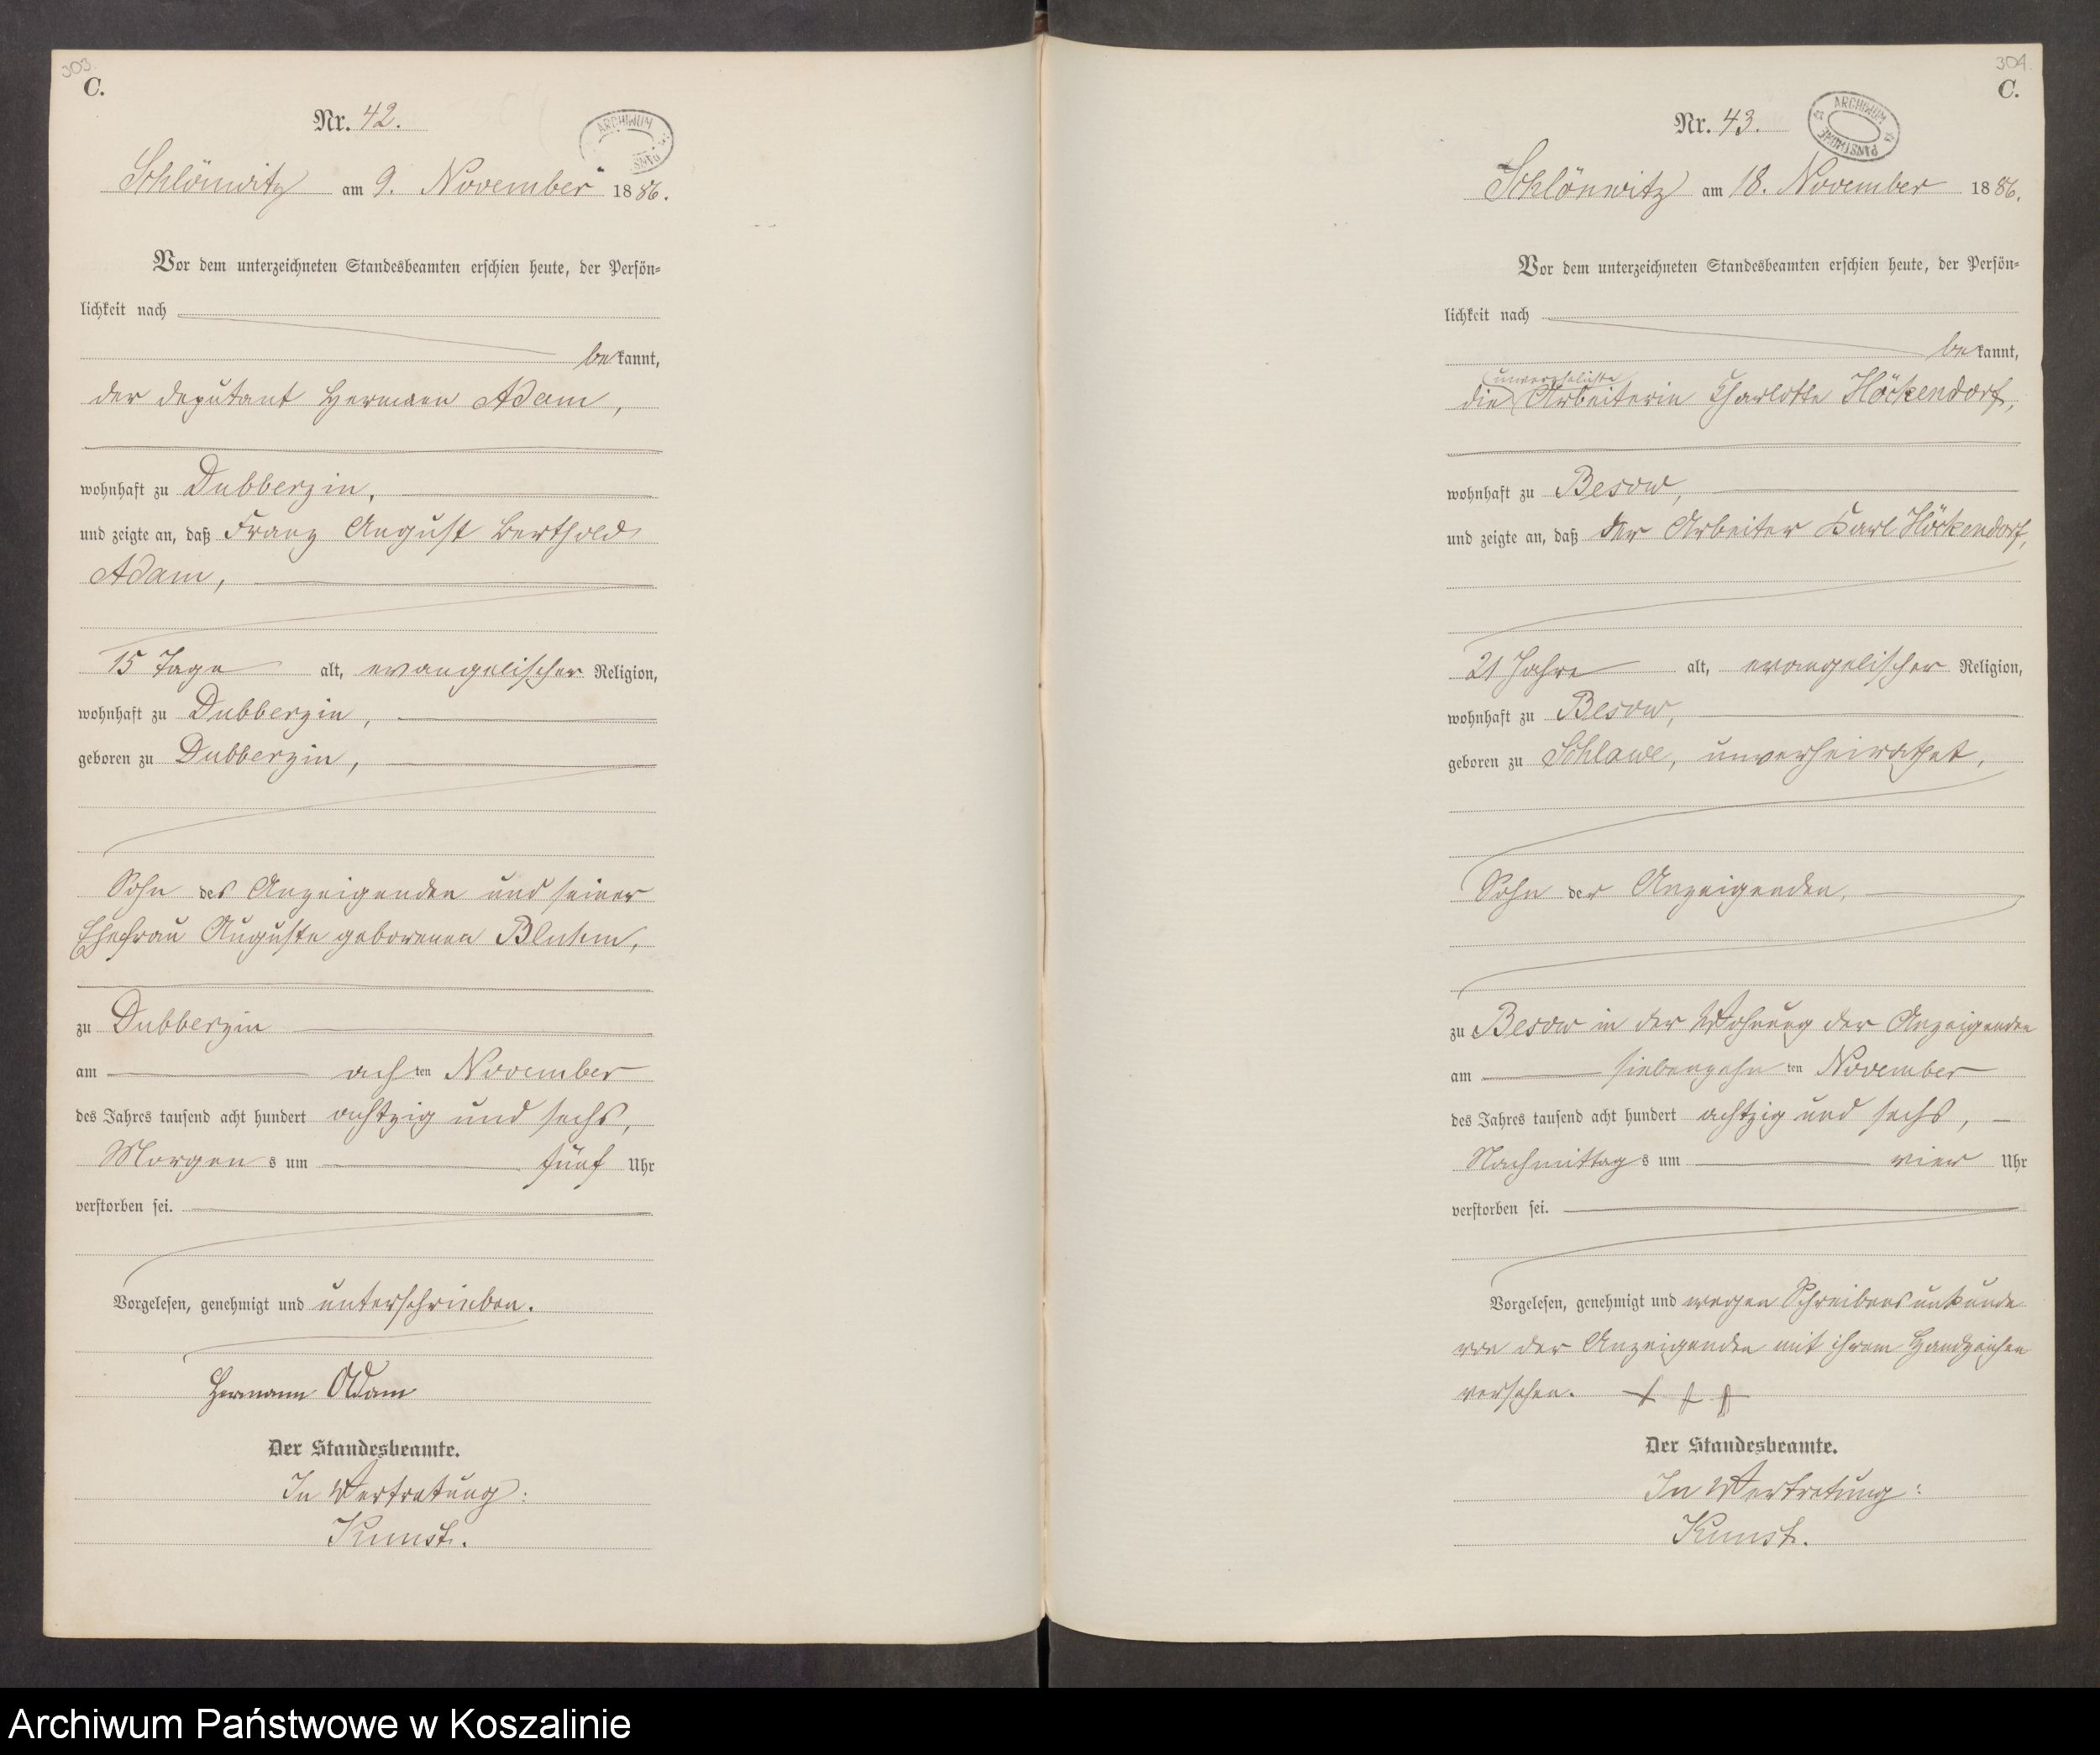 303.
C.
Nr. 42.
ARCHIWUM
Schlönwitz am 9. November 1886.
Vor dem unterzeichneten Standesbeamten erschien heute, der Persön-
lichkeit nach
bekannt,
der Deputant Hermann Adam,
wohnhaft zu Dubberzin,
und zeigte an, daß Franz August Berthold
Adam,
15 Tage alt, evangelischer Religion,
wohnhaft zu Dubberzin,
geboren zu Dubberzin,
Sohn des Anzeigenden und seiner
Ehefrau Auguste geborenen Bluhm,
zu Dubberzin
am achten November
des Jahres tausend acht hundert achtzig und sechs,
Morgens um fünf Uhr
verstorben sei.
Vorgelesen, genehmigt und unterschrieben.
Hermann Adam
Der Standesbeamte.
In Vertretung:
Kunst.
304.
C.
Nr. 43.
ARCHIWUM PAŃSTWOWE
Schlönwitz am 18. November 1886.
Vor dem unterzeichneten Standesbeamten erschien heute, der Persön-
lichkeit nach
bekannt,
unverehelichte
die Arbeiterin Charlotte Höckendorf,
wohnhaft zu Besow,
und zeigte an, daß der Arbeiter Karl Höckendorf,
21 Jahre alt, evangelischer Religion,
wohnhaft zu Besow,
geboren zu Schlawe, unverheirathet,
Sohn der Anzeigenden,
zu Besow in der Wohnung der Anzeigenden
am siebenzehnten November
des Jahres tausend acht hundert achtzig und sechs,
Nachmittags um vier Uhr
verstorben sei.
Vorgelesen, genehmigt und wegen Schreibensunkunde
von der Anzeigenden mit ihrem Handzeichen
versehen. + + +
Der Standesbeamte.
In Vertretung:
Kunst.
Archiwum Państwowe w Koszalinie